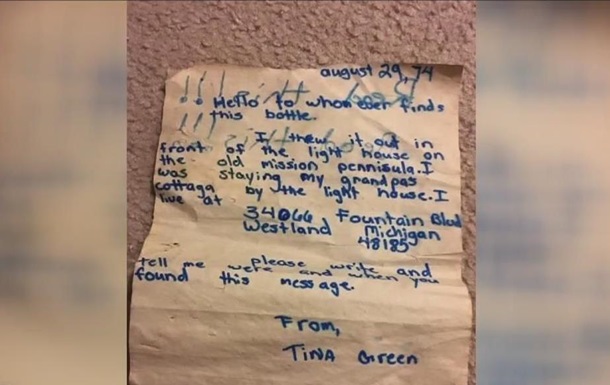 august 29, 74
!! Hello to whom ever finds
this bottle.
!!!
I threw it out in
front of the light house on
the old mission pennisula. I
was staying my grandpas
cottaga by the light house. I
live at
34066 Fountain Blvd
Westland Michigan
48185
please write and
tell me were and when you
found this message.
From,
TiNA Green